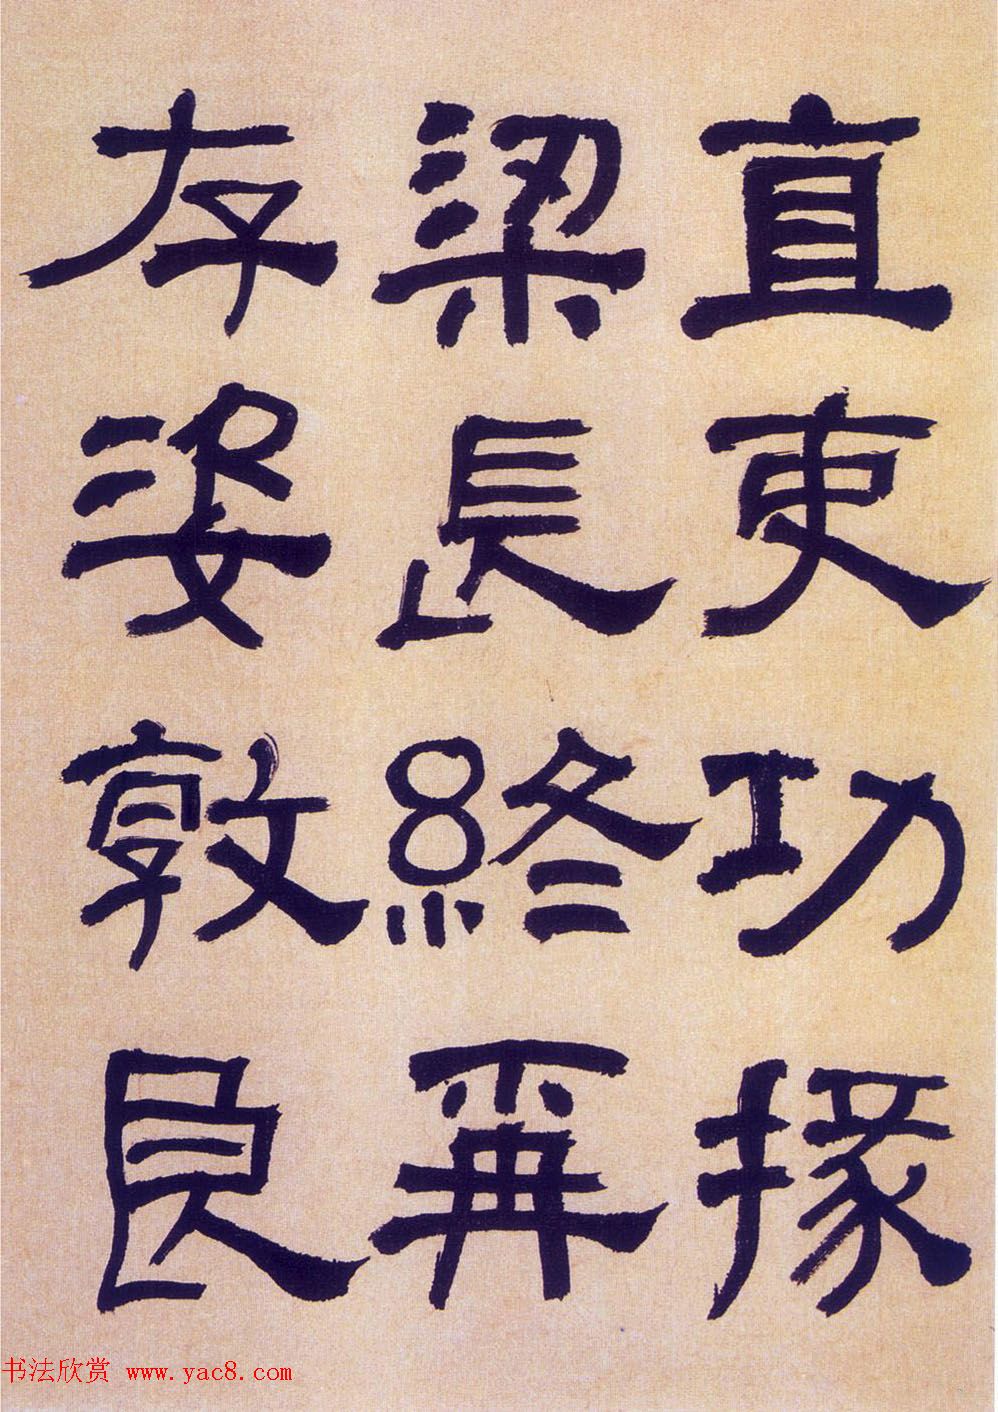 直吏功掾
梁長終爯
存姿敦良
书法欣赏 www.yac8.com